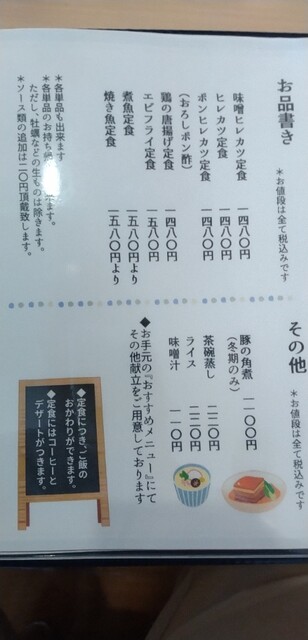 お品書き
＊お値段は全て税込みです
味噌ヒレカツ定食 一四八〇円
ヒレカツ定食 一四八〇円
ポンヒレカツ定食 一四八〇円
（おろしポン酢）
鶏の唐揚げ定食 一四八〇円
エビフライ定食 一五八〇円
煮魚定食 一五八〇円より
焼き魚定食 一五八〇円より
＊各単品も出来ます
＊各単品のお持ち
ただし、牡蠣などの生ものは除きます。
＊ソース類の追加は二〇円頂戴致します。
その他
＊お値段は全て税込みです
豚の角煮 一一〇〇円
（冬期のみ）
茶碗蒸し 二二〇円
ライス 二二〇円
味噌汁 一一〇円
◆お手元の『おすすめメニュー』にて
その他献立をご用意しております
◆定食につき、ご飯の
おかわりができます。
◆定食にはコーヒーと
デザートがつきます。